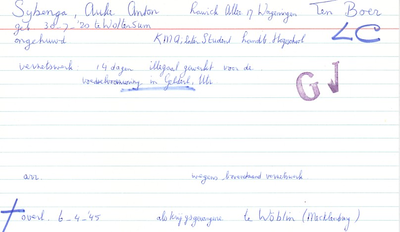 Sybenga, Auke Anton Rawich Alles Wageningen Ten Boer
geb 30-7-'20 te Woltersum LC
ongehuwd KMA, later Student Landb. Hogeschool
verzetswerk 14 dagen illegaal gewerkt voor de
voedselvoorziening in Gelderl. Utr GJ
arr. wegens bevordeerd verzetswerk
overl. 6-4-'45 als krijgsgevangene te Wöblin (Mecklenburg)